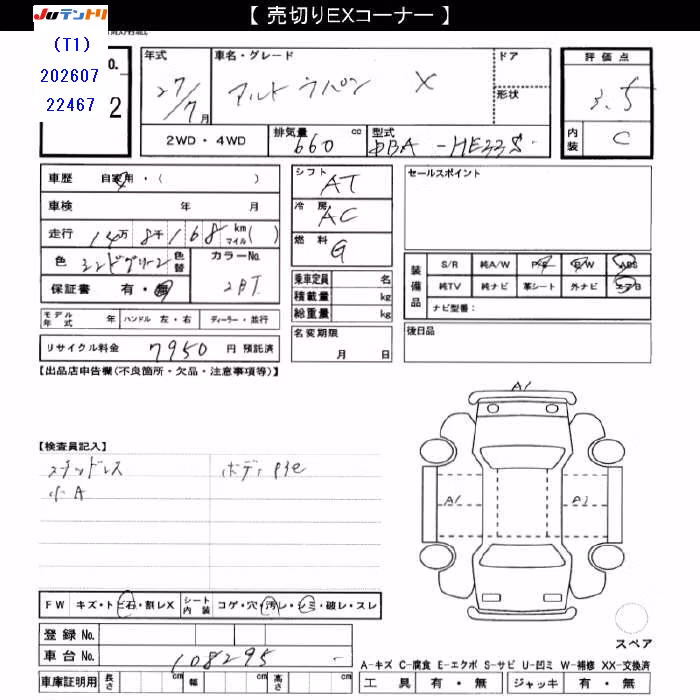 【 売切りEXコーナー 】
JUテントリ
(T1)
202607
22467
o.
2
年式
27/7月
車名・グレード
アルト ラパン X
ドア
形状
評価点
3.5
2WD・4WD
排気量 660 cc
型式 DBA-HE33S
内装 C
車歴 自家用・( )
車検 年 月
走行 14万8千168 km マイル( )
色
色替
カラーNo.
2BT
保証書 有・無
モデル年式 年 ハンドル 左・右 ディーラー・並行
リサイクル料金 7950 円 預託済
シフト AT
冷房 AC
燃料 G
乗車定員 名
積載量 kg
総重量 kg
名変期限
月 日
セールスポイント
装備品
S/R 純A/W P/S P/W ABS
純TV 純ナビ 革シート 外ナビ エアB
ナビ型番:
後日品
【出品店申告欄(不良箇所・欠品・注意事項等)】
【検査員記入】
スタッドレス
小A
A1
A1
FW キズ・トビ石・割レX シート内装 コゲ・穴・汚レ・シミ・破レ・スレ
登録 No.
車台 No. 108295
車庫証明用 長さ cm 幅 cm 高さ cm
スペア
A-キズ C-腐食 E-エクボ S-サビ U-凹ミ W-補修 XX-交換済
工具 有・無 ジャッキ 有・無